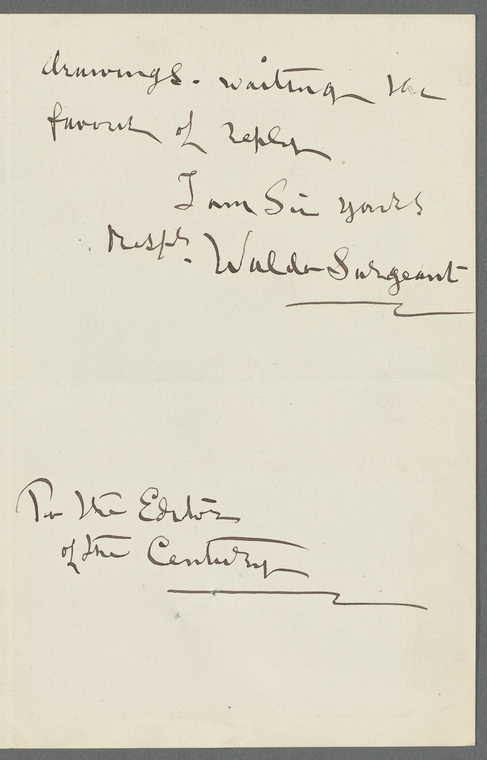 drawings. waiting the
favour of reply
I am Sir yours
Respy. Waldo Sargeant
To the Editor
of the Century